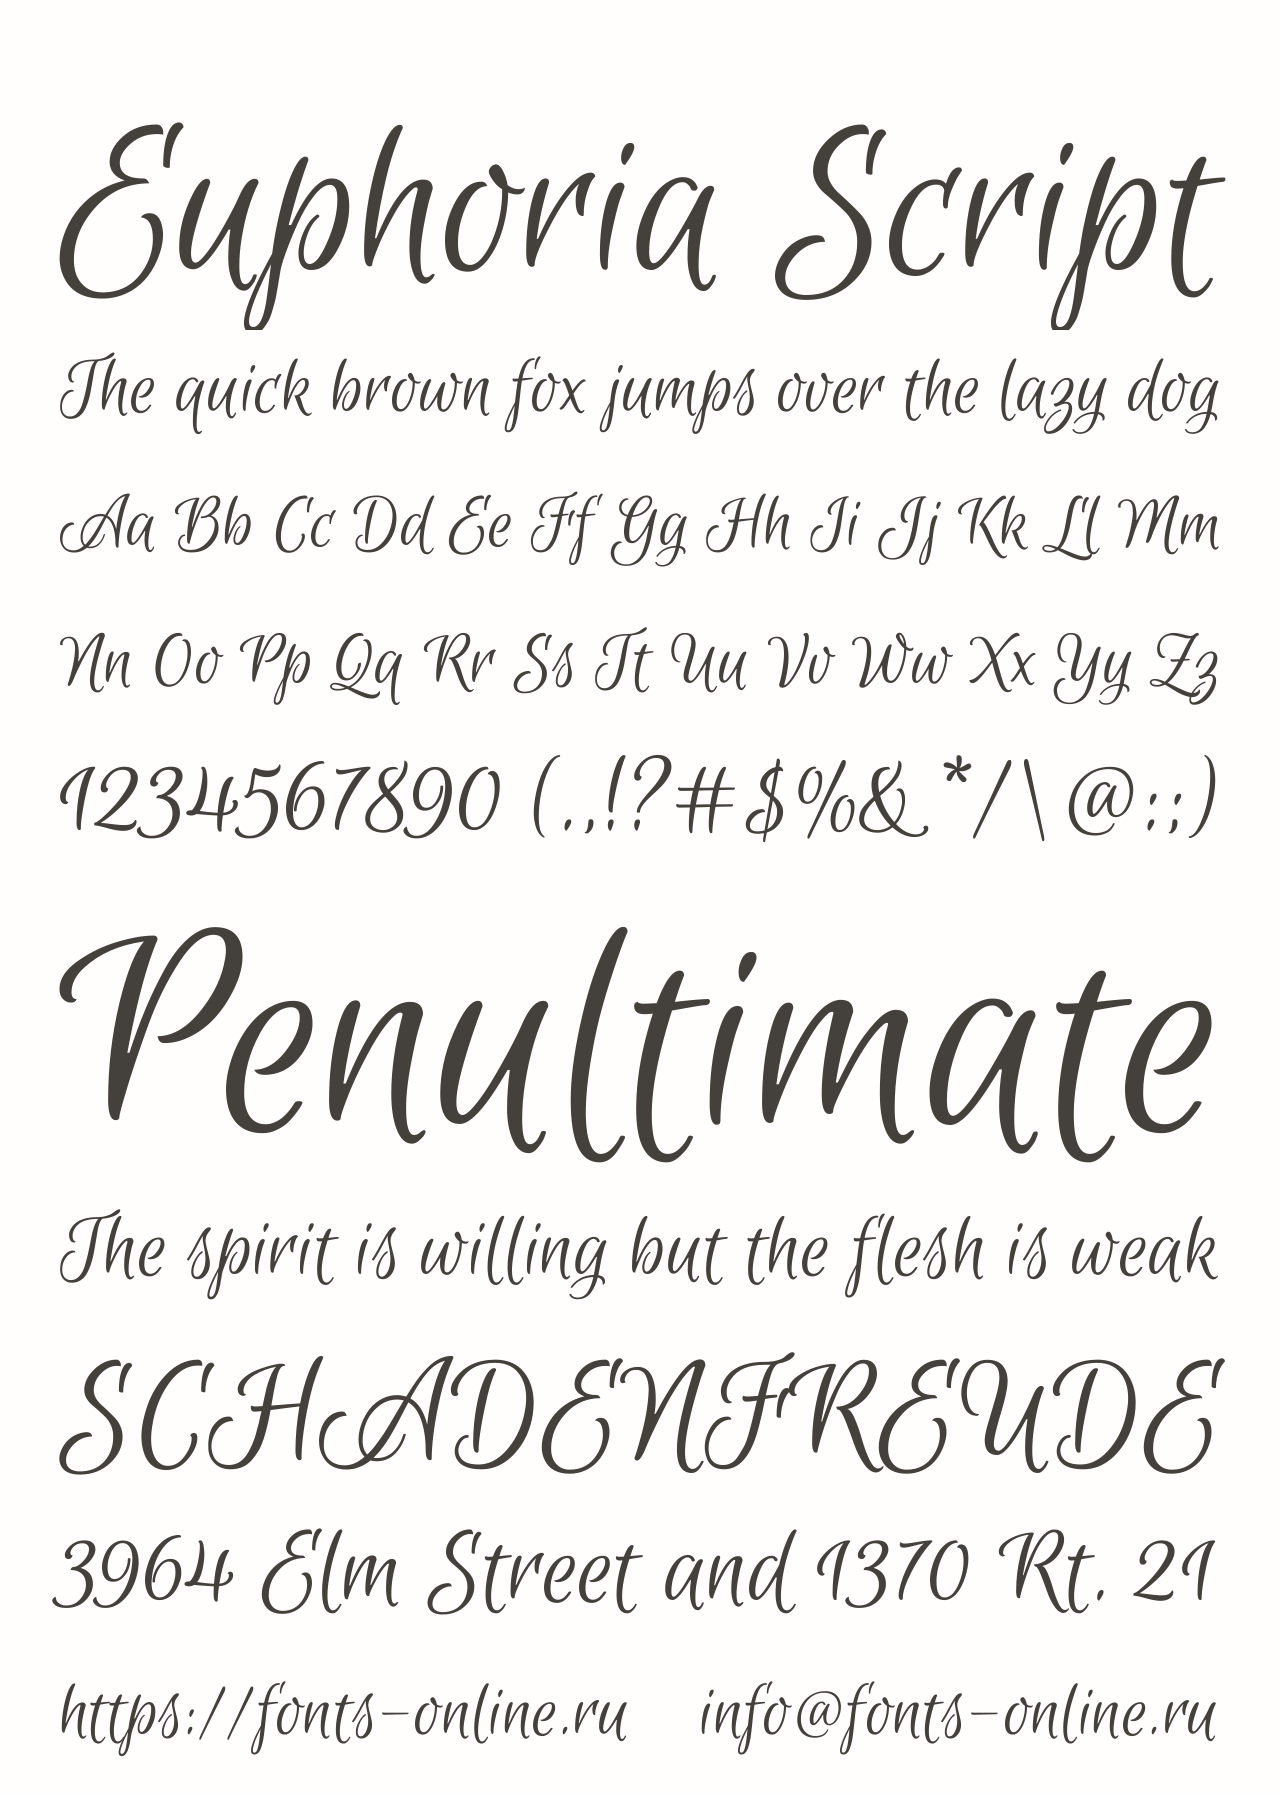 Euphoria Script
The quick brown fox jumps over the lazy dog
Aa Bb Cc Dd Ee Ff Gg Hh Ii Jj Kk Ll Mm
Nn Oo Pp Qq Rr Ss Tt Uu Vv Ww Xx Yy Zz
1234567890 (.,!?#$%&*/\@:;)
Penultimate
The spirit is willing but the flesh is weak
SCHADENFREUDE
3964 Elm Street and 1370 Rt. 21
https://fonts-online.ru info@fonts-online.ru